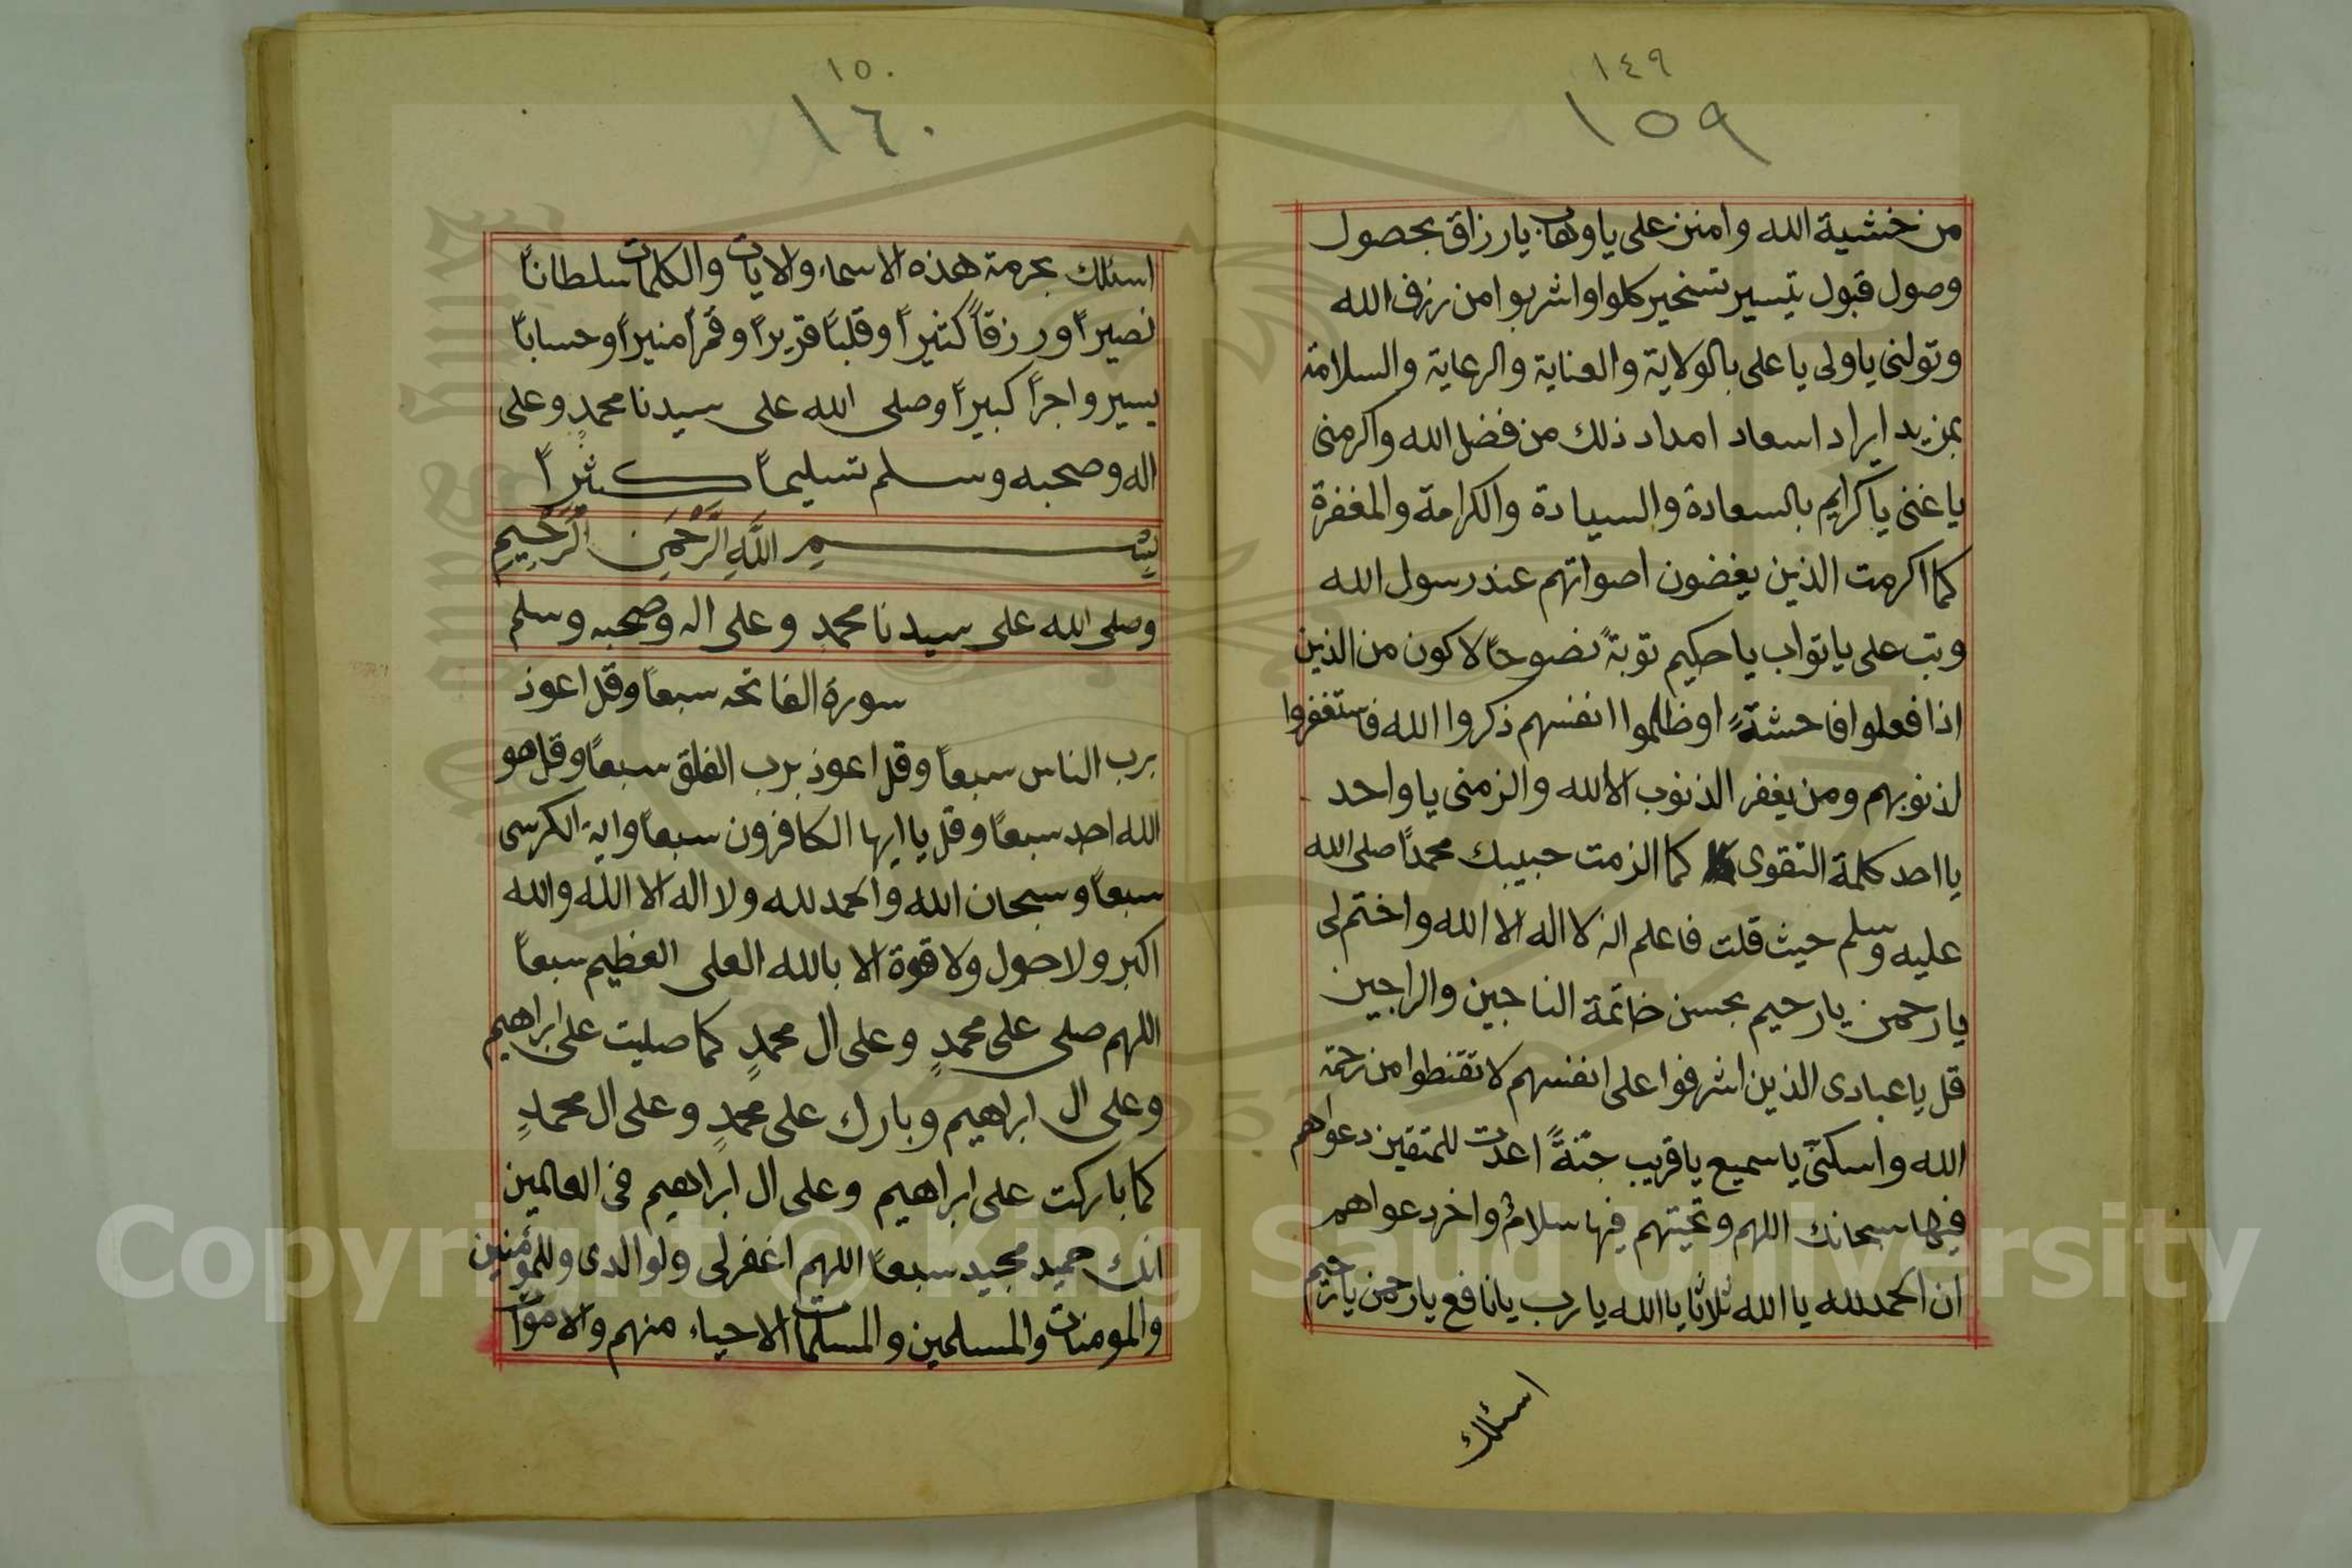 ١٤٩
١٥٩
من خشية الله وامنن على ياوهاب يارزاق بحصول
وصول قبول تيسير تسخير كلوا واشربوا من رزق الله
وتولنى ياولى ياعلى بالولاية والعناية والرعاية والسلامة
بمزيد ايراد اسعاد امداد ذلك من فضل الله واكرمنى
ياغنى ياكرايم بالسعادة والسيادة والكرامة والمغفرة
كما اكرمت الذين يغضون اصواتهم عند رسول الله
وتب على ياتواب ياحكيم توبةً نصوحاً لاكون من الذين
اذا فعلوا فاحشةً اوظلموا انفسهم ذكروا الله فاستغفروا
لذنوبهم ومن يغفر الذنوب الا الله والزمنى ياواحد
يااحد كلمة التقوى كما الزمت حبيبك محمداً صلى الله
عليه وسلم حيث قلت فاعلم انه لا اله الا الله واختم لى
يارحمن يارحيم بحسن خاتمة الناجين والراجين
قل ياعبادى الذين اشرفوا على انفسهم لاتقنطوا من رحمة
الله واسكنّى ياسميع ياقريب جنّةً اعدت للمتقين دعواهم
فيها سبحانك اللهم وتحيتهم فيها سلامٌ واخر دعواهم
ان الحمدلله ياالله ثلاثا ياالله يارب يانافع يارحمن يارحيم
اسئلك
١٥٠
١٦٠
اسئلك بحرمة هذه الاسماء والايات والكلمات سلطاناً
نصيراً ورزقاً كثيراً وقلبًا قريراً وقمراً منيراً وحساباً
يسير واجراً كبيراً وصلى الله على سيدنا محمدٍ وعلى
اله وصحبه وسلم تسليماً كثيراً
بِسْمِ اللَّهِ الرَّحْمَنِ الرَّحِيمِ
وصلى الله على سيدنا محمدٍ وعلى اله وصحبه وسلم
سورة الفاتحه سبعاً وقل اعوذ
برب الناس سبعاً وقل اعوذ برب الفلق سبعاً وقل هو
الله احد سبعاً وقل ياايها الكافرون سبعاً واية الكرسى
سبعاً وسبحان الله والحمدلله ولا اله الا الله والله
اكبر ولاحول ولاقوة الا بالله العلى العظيم سبعاً
اللهم صلى على محمدٍ وعلى ال محمدٍ كما صليت على ابراهيم
وعلى ال ابراهيم وبارك على محمدٍ وعلى ال محمدٍ
كما باركت على ابراهيم وعلى ال ابراهيم فى العالمين
انك حميد مجيد سبعاً اللهم اغفرلى ولوالدى وللمؤمنين
والمومنات والمسلمين والمسلمات الاحياء منهم والاموات
Copyright © King Saud University